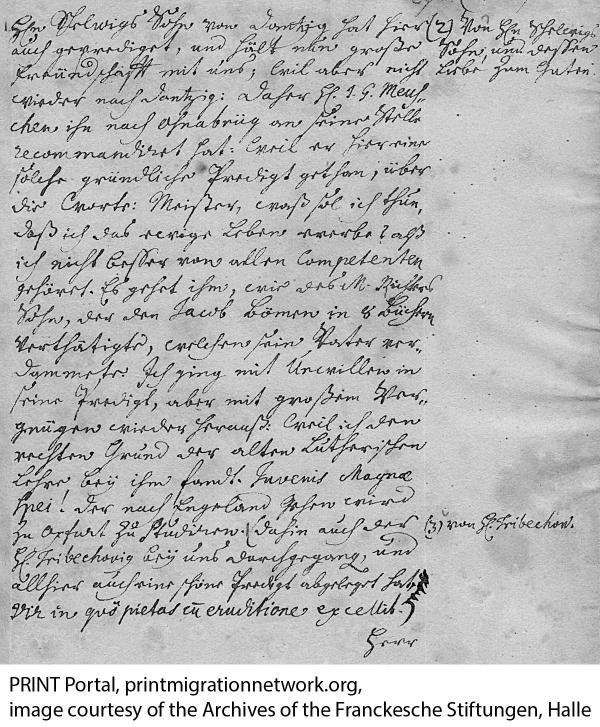 Hn Schelwigs Sohn von Dantzig hat hier
auch geprediget, und hält nun große
Freündschafft mit uns; will aber nicht
wieder nach Dantzig: daher H. J. G. Meuſ-
chen ihn nach Oſnabrüg an seine Stelle
recommandiret hat: weil er hier eine
solche gründliche Predigt gethan, über
die Worte: Meister, waß sol ich thun,
daß ich das ewige Leben ererbe? alß
ich nicht besser von allen Competenten
gehöret. Es gehet ihm, wie des M. Richters
Sohn, der den Jacob Bömen in 8 Büchern
verthätigte, welchen sein Vater ver-
dammete. Ich ging mit Unwillen in
seine Predigt, aber mit großem Ver-
gnügen wieder herauß: weil ich den
rechten Grund der alten Lutherischen
Lehre bey ihm fandt. Juvenis Magnæ
spei! der nach Engeland gehen wird
in Oxfurt zu studiren. (dahin auch der
H. Tribechovig bey uns durchgegang, und
allhier auch eine schöne Predigt abgeleget hat.
Vir in quo pietas cu eruditione excellit.
Herr
(2) Von Hn Schelwigs
Sohn, und dessen
Liebe zum Guten.
(3) von H. Tribechov.
PRINT Portal, printmigrationnetwork.org,
image courtesy of the Archives of the Franckesche Stiftungen, Halle